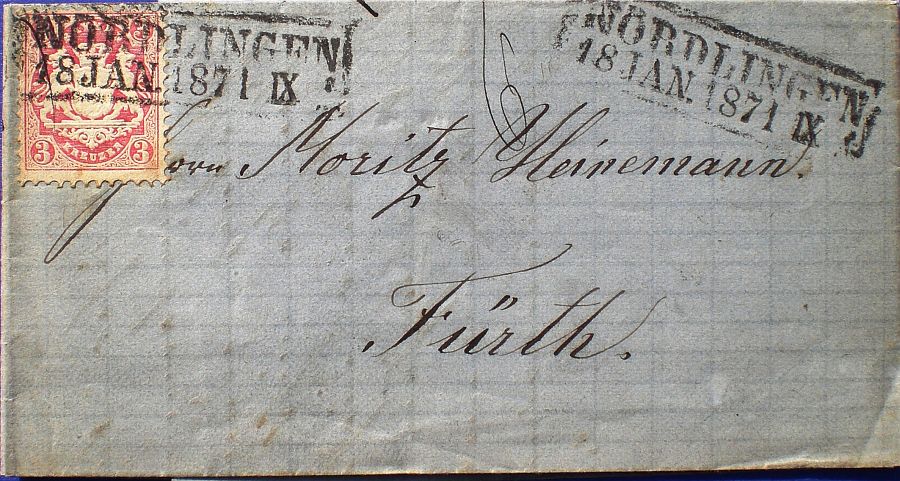 NÖRDLINGEN
18 JAN. 1871 IX
NÖRDLINGEN
18 JAN. 1871 IX
3 KREUZER 3
Herrn Moritz Heinemann.
Fürth.